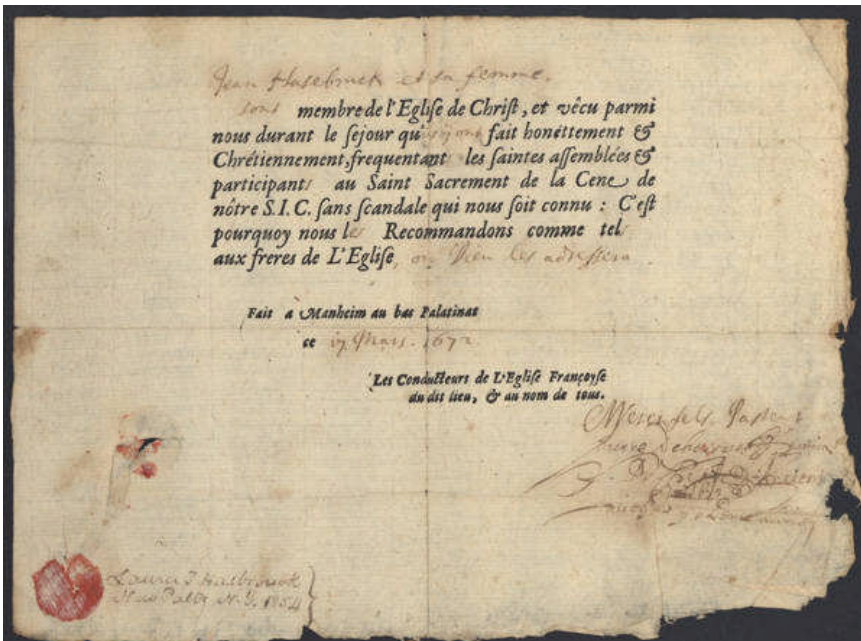 Jean Hasebruck et sa femme,
sont membre de l'Eglise de Christ, et vêcu parmi
nous durant le sejour qu' ont fait honêttement &
Chrétiennement, frequentant les saintes assemblées &
participants au Saint Sacrement de la Cene de
nôtre S.I.C. sans scandale qui nous soit connu : C'est
pourquoy nous les Recommandons comme tels
aux freres de L'Eglise, ou Dieu les adressera
Fait à Manheim au bas Palatinat
ce 17 Mars. 1672
Les Conducteurs de L'Eglise Françoyse
du dit lieu, & au nom de tous.
Pasteur
Laura Hasbrouck
N.Y. 1854